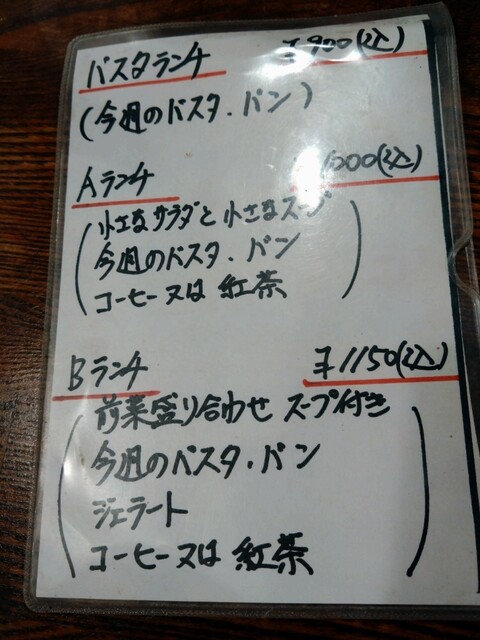 パスタランチ ¥900(込)
(今週のパスタ.パン)
Aランチ 000(込)
小さなサラダと小さなスープ
今週のパスタ.パン
コーヒー又は紅茶
Bランチ ¥1150(込)
前菜盛り合わせ スープ付き
今週のパスタ.パン
ジェラート
コーヒー又は紅茶